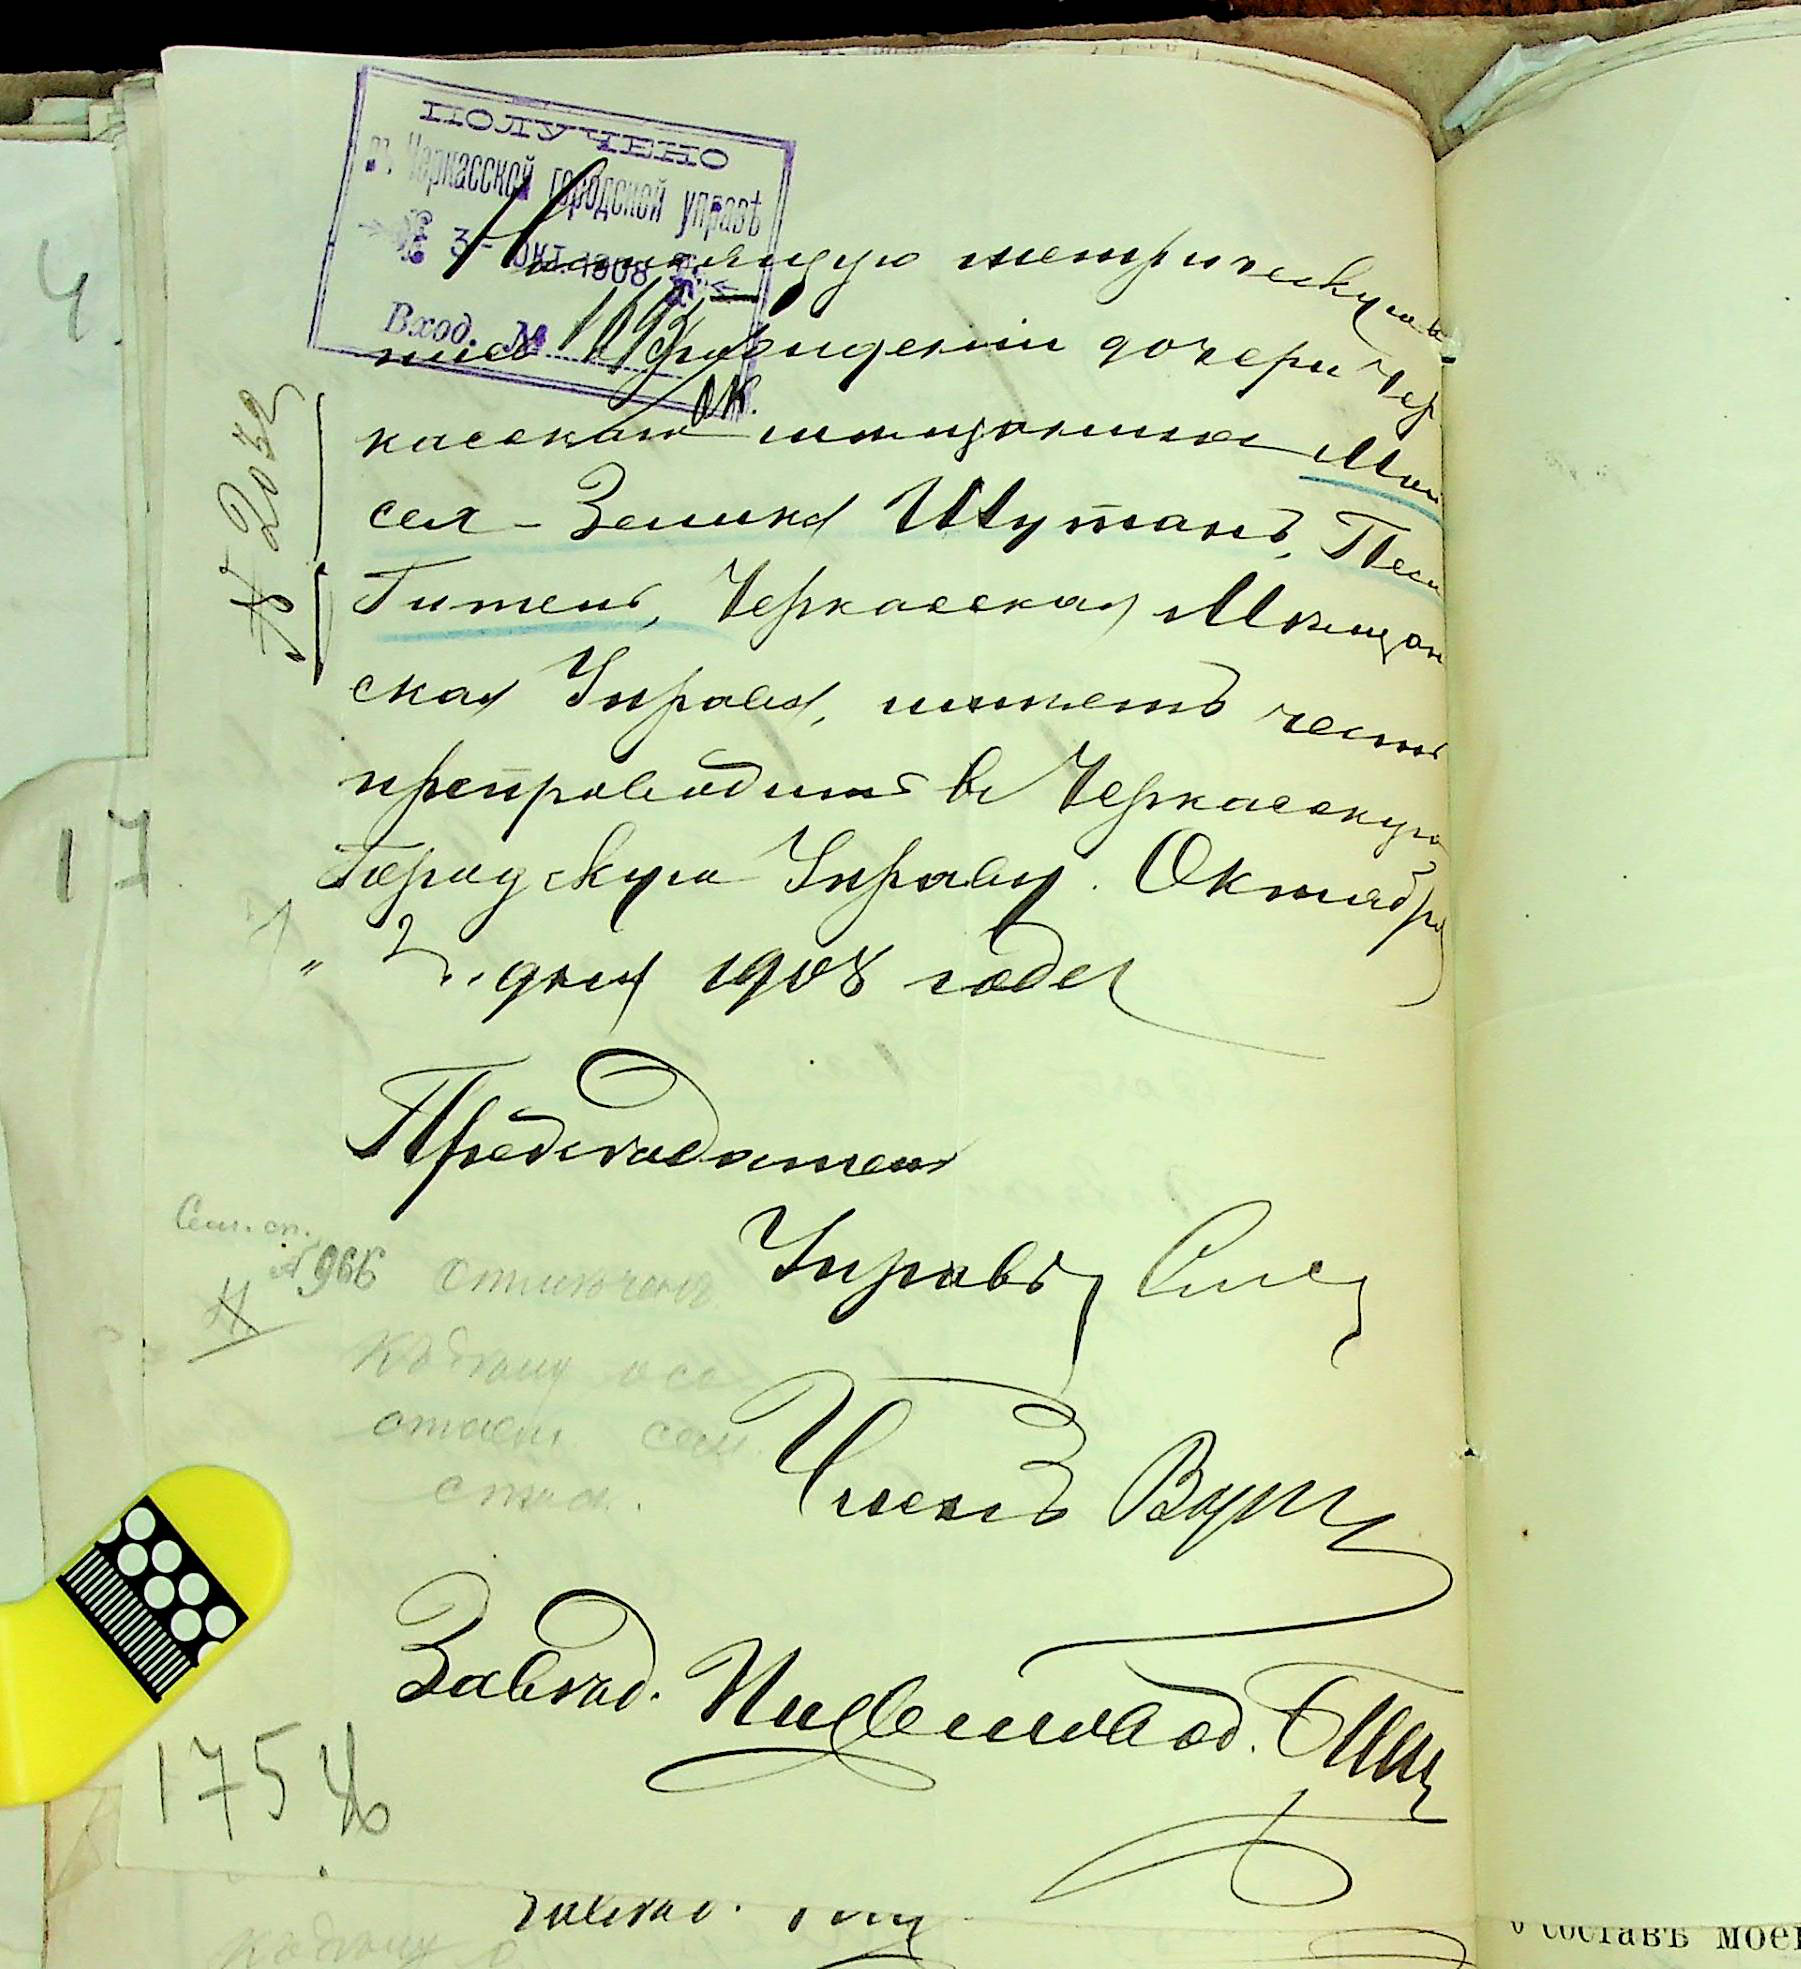 ПОЛУЧЕНО
въ Черкасской городской управѣ
3 - ОКТ. 1908
Вход. №
Настоящую метрическую вы-
пись о рожденіи дочери Чер
касскаго мѣщанина Мои
сея - Зелика Шутанъ, Песи
Гитель, Черкасская Мѣщан
ская Управа, имѣетъ честь
препроводить въ Черкасскую
Городскую Управу. Октября
" 2 " дня 1908 года
№ 2032
Предсѣдатель
Управы
Членъ
Завѣд. Письмовод.
Сем. сп.
№ 966
отмѣченъ
к одному
сем.
4
17
175
о составѣ моег